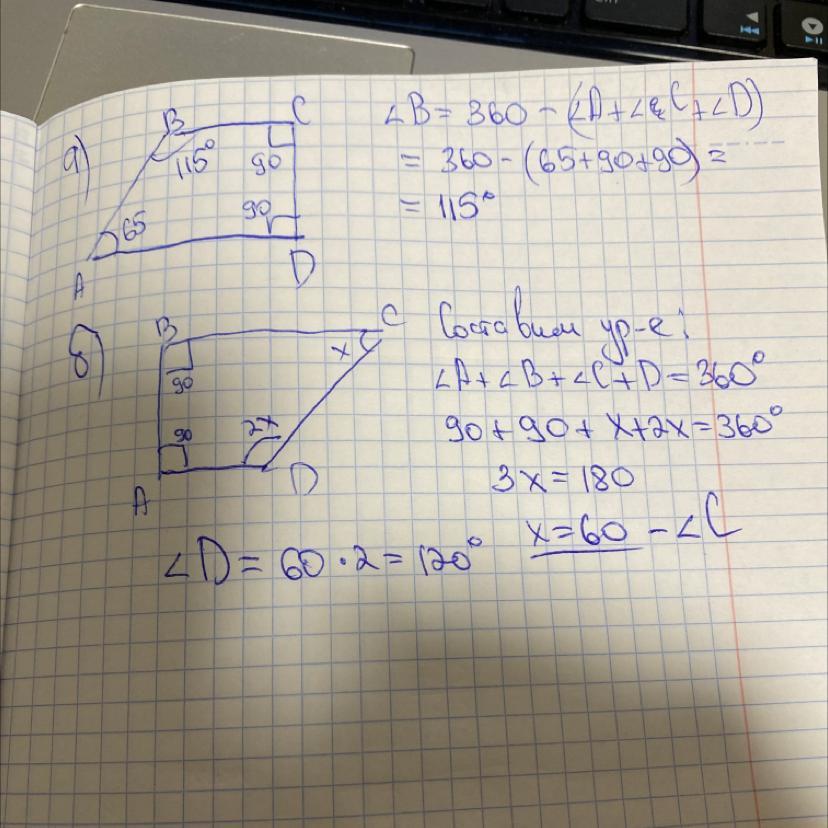 а)
B C
115° 90
65 90
A D
∠B = 360 - (∠A+∠C+∠D)
= 360 - (65+90+90) =
= 115°
б)
B C
90 x
90 2x
A D
Составим ур-е:
∠A+∠B+∠C+D=360°
90+90+x+2x=360°
3x=180
x=60 - ∠C
∠D = 60·2 = 120°